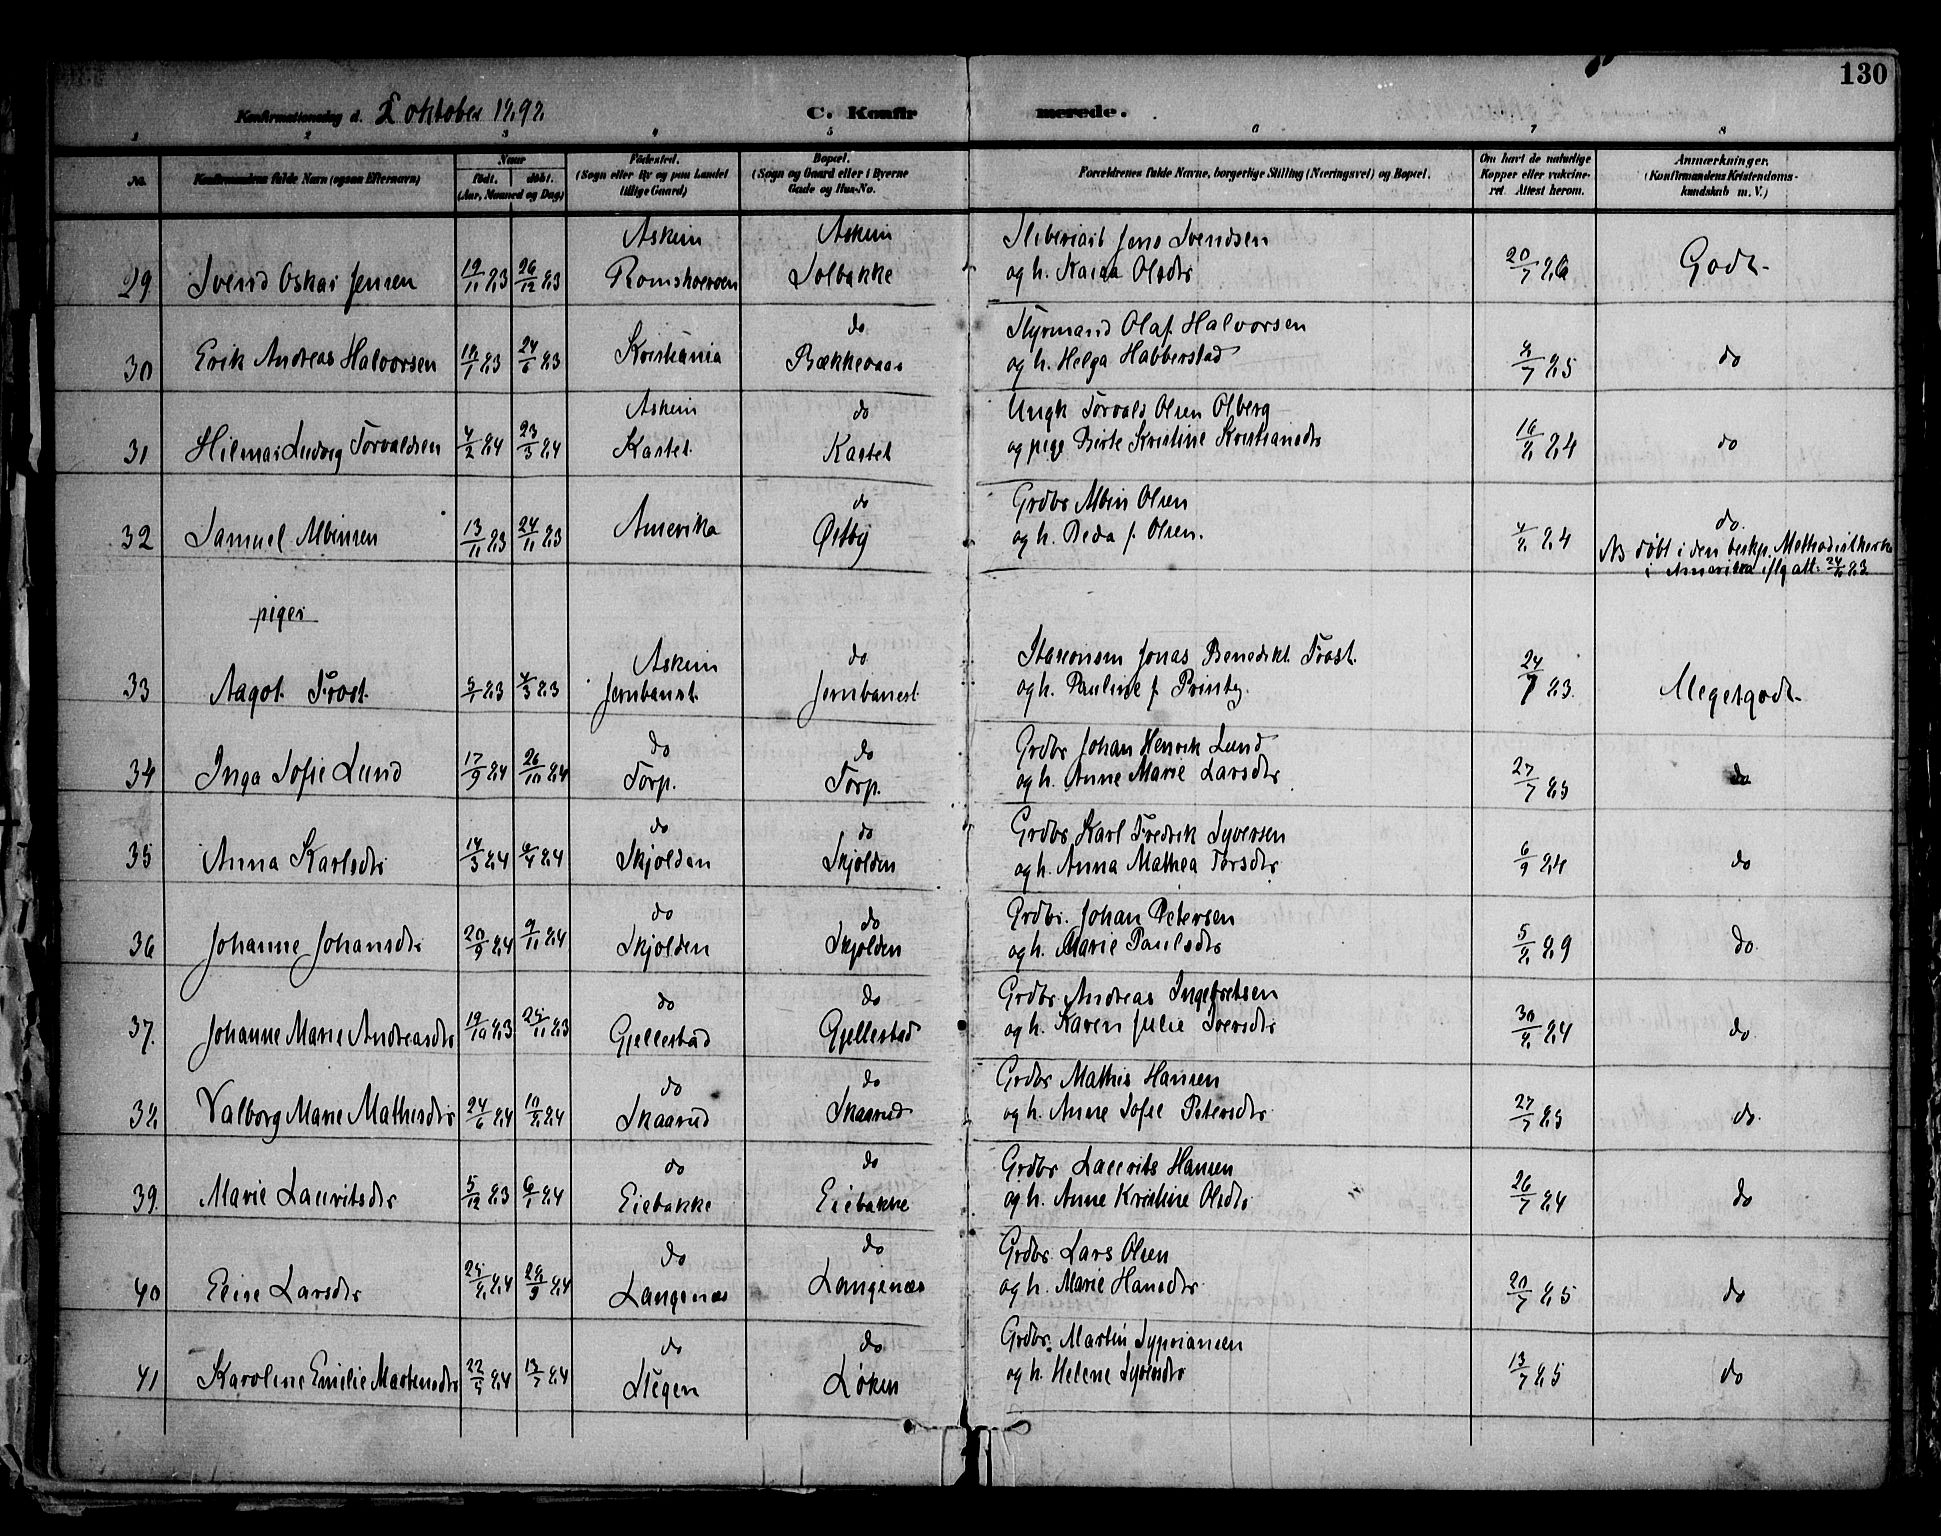 130
Konfirmationsdag d. 2 oktober 1898. C. Konfir merede.
1 2 3 4 5 6 7 8
No. Konfirmandens fulde Navn (ogsaa Efternavn) Naar født. døbt. (Aar, Maaned og Dag) Fødested. (Sogn eller By og paa Landet tillige Gaard) Bopæl. (Sogn og Gaard eller i Byerne Gade og Hus-No. Forældrenes fulde Navne, borgerlige Stilling (Næringsvei) og Bopæl. Om havt de naturlige Kopper eller vakcineret. Attest herom. Anmærkninger. (Konfirmandens Kristendomskundskab m. V.)
Askim Askim Sliberiarb Jens Svendsen
29 Svend Oskar Jensen 19/11 83 26/12 83 Romskoeroen Solbakke og h. Kaia Olsdtr 20/7 86 Godt
do Styrmand Olaf Halvorsen
30 Erik Andreas Halvorsen 83 24/6 83 Kristiania Bækkevaar og h. Helga Habberstad 8/7 85 do
Askim do Ungk Torvald Olsen Olberg
31 Hilmar Ludvig Torvaldsen 4/2 84 23/3 84 Kastet Kastet og pige Birte Kristine Kristiansdtr 84 do
do Grdbr Albin Olsen
32 Samuel Albinsen 13/11 83 24/11 83 Amerika Østby og h. Beda f. Olsen. 4/8 84 do.
NB døbt i den beskp. Methodistkirke
i Amerika iflg att. 83
piger
Askim do Stasionsm Jonas Benedikt Frost.
33 Aagot Frost 83 4/3 83 Jernbanst. Jernbanest og h. Pauline f. Printz. 24/7 83. Megetgodt
do do Grdbr Johan Henrik Lund
34 Inga Sofie Lund 17/9 84 26/10 84 Torp. Torp. og h. Anne Marie Larsdtr 27/7 85 do
do do Grdbr Karl Fredrik Syversen
35 Anna Karlsdtr 14/3 84 6/4 84 Skjolden Skjolden og h. Anna Mathea Torsdtr 6/9 84 do
do do Grdbr. Johan Petersen
36 Johanne Johansdtr 20/9 84 9/11 84 Skjolden Skjolden og h. Marie Paulsdtr 5/8 89 do.
do do Grdbr Andreas Ingebretsen
37. Johanne Marie Andreasdtr 19/10 83 25/11 83 Gjellestad Gjellestad og h. Karen Julie Iversdtr 30/8 84 do.
do do Grdbr Mathis Hansen
38 Valborg Marie Mathisdtr 24/6 84 10/8 84 Skaarud Skaarud og h. Anne Sofie Petersdtr 27/7 85 do.
do do Grdbr Laurits Hansen
39. Marie Lauritsdtr 5/12 83 6/1 84 Eiebakke Eiebakke og h. Anne Kristine Olsdtr 26/7 84 do
do do Grdbr. Lars Olsen
40 Elise Larsdtr 25/8 84 28/9 84 Langenæs Langenæs og h. Marie Hansdtr 20/7 85 do
do do Grdbr. Martin Syprianen
41 Karoline Emilie Martensdtr 22/5 84 13/7 84 Stegen Løken og h. Helene Syversdtr 13/7 85 do